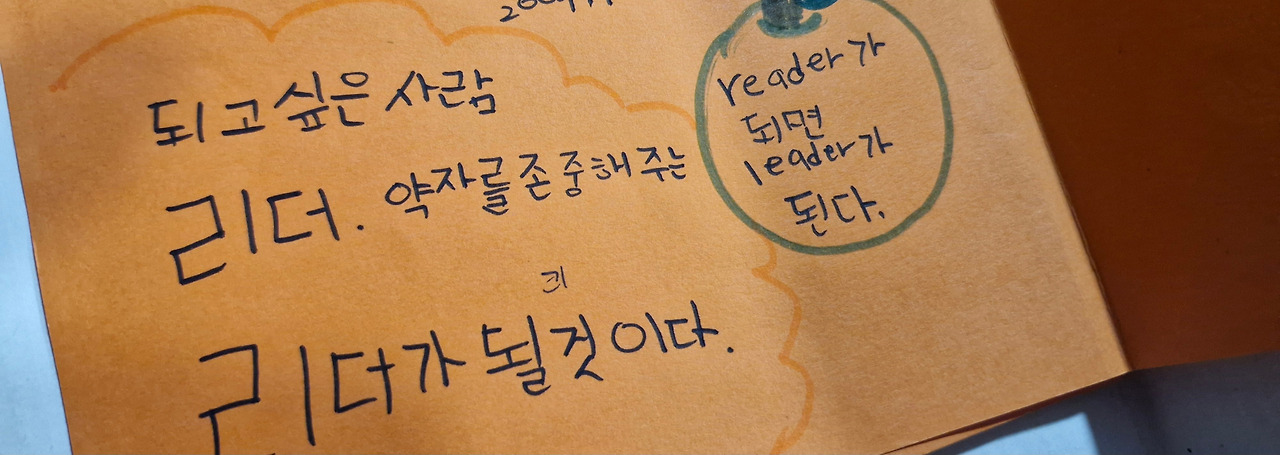 되고 싶은 사람
리더. 약자를 존중해 주는
리더가 될 것이다.
reader가
되면
leader가
된다.